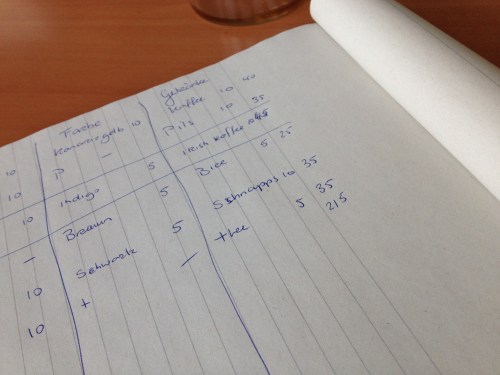 Farbe Getränke
10 Kanariegelb 10 Kaffee 10 40
10 P – Pils 10 35
10 indigo 5 irish kaffee 10 45
– Braun 5 Bier 5 25
10 Schwarz 5 Schnapps 10 35
10 t – tee 5 35
215